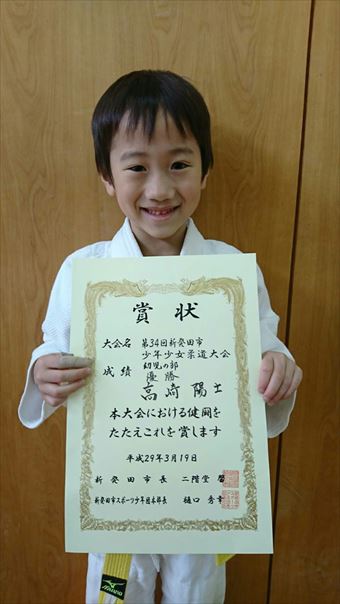 賞状
大会名 第34回新発田市
少年少女柔道大会
成績 幼児の部
優勝
高崎陽士
本大会における健闘を
たたえこれを賞します
平成29年3月19日
新発田市長 二階堂 馨
新発田市スポーツ少年団本部長 樋口 秀幸
MIZUNO